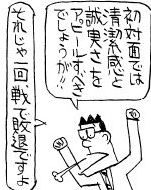 初対面では
清潔感と
誠実さを
アピールすべき
でしょうが!!
それじゃ一回戦で敗退ですよ